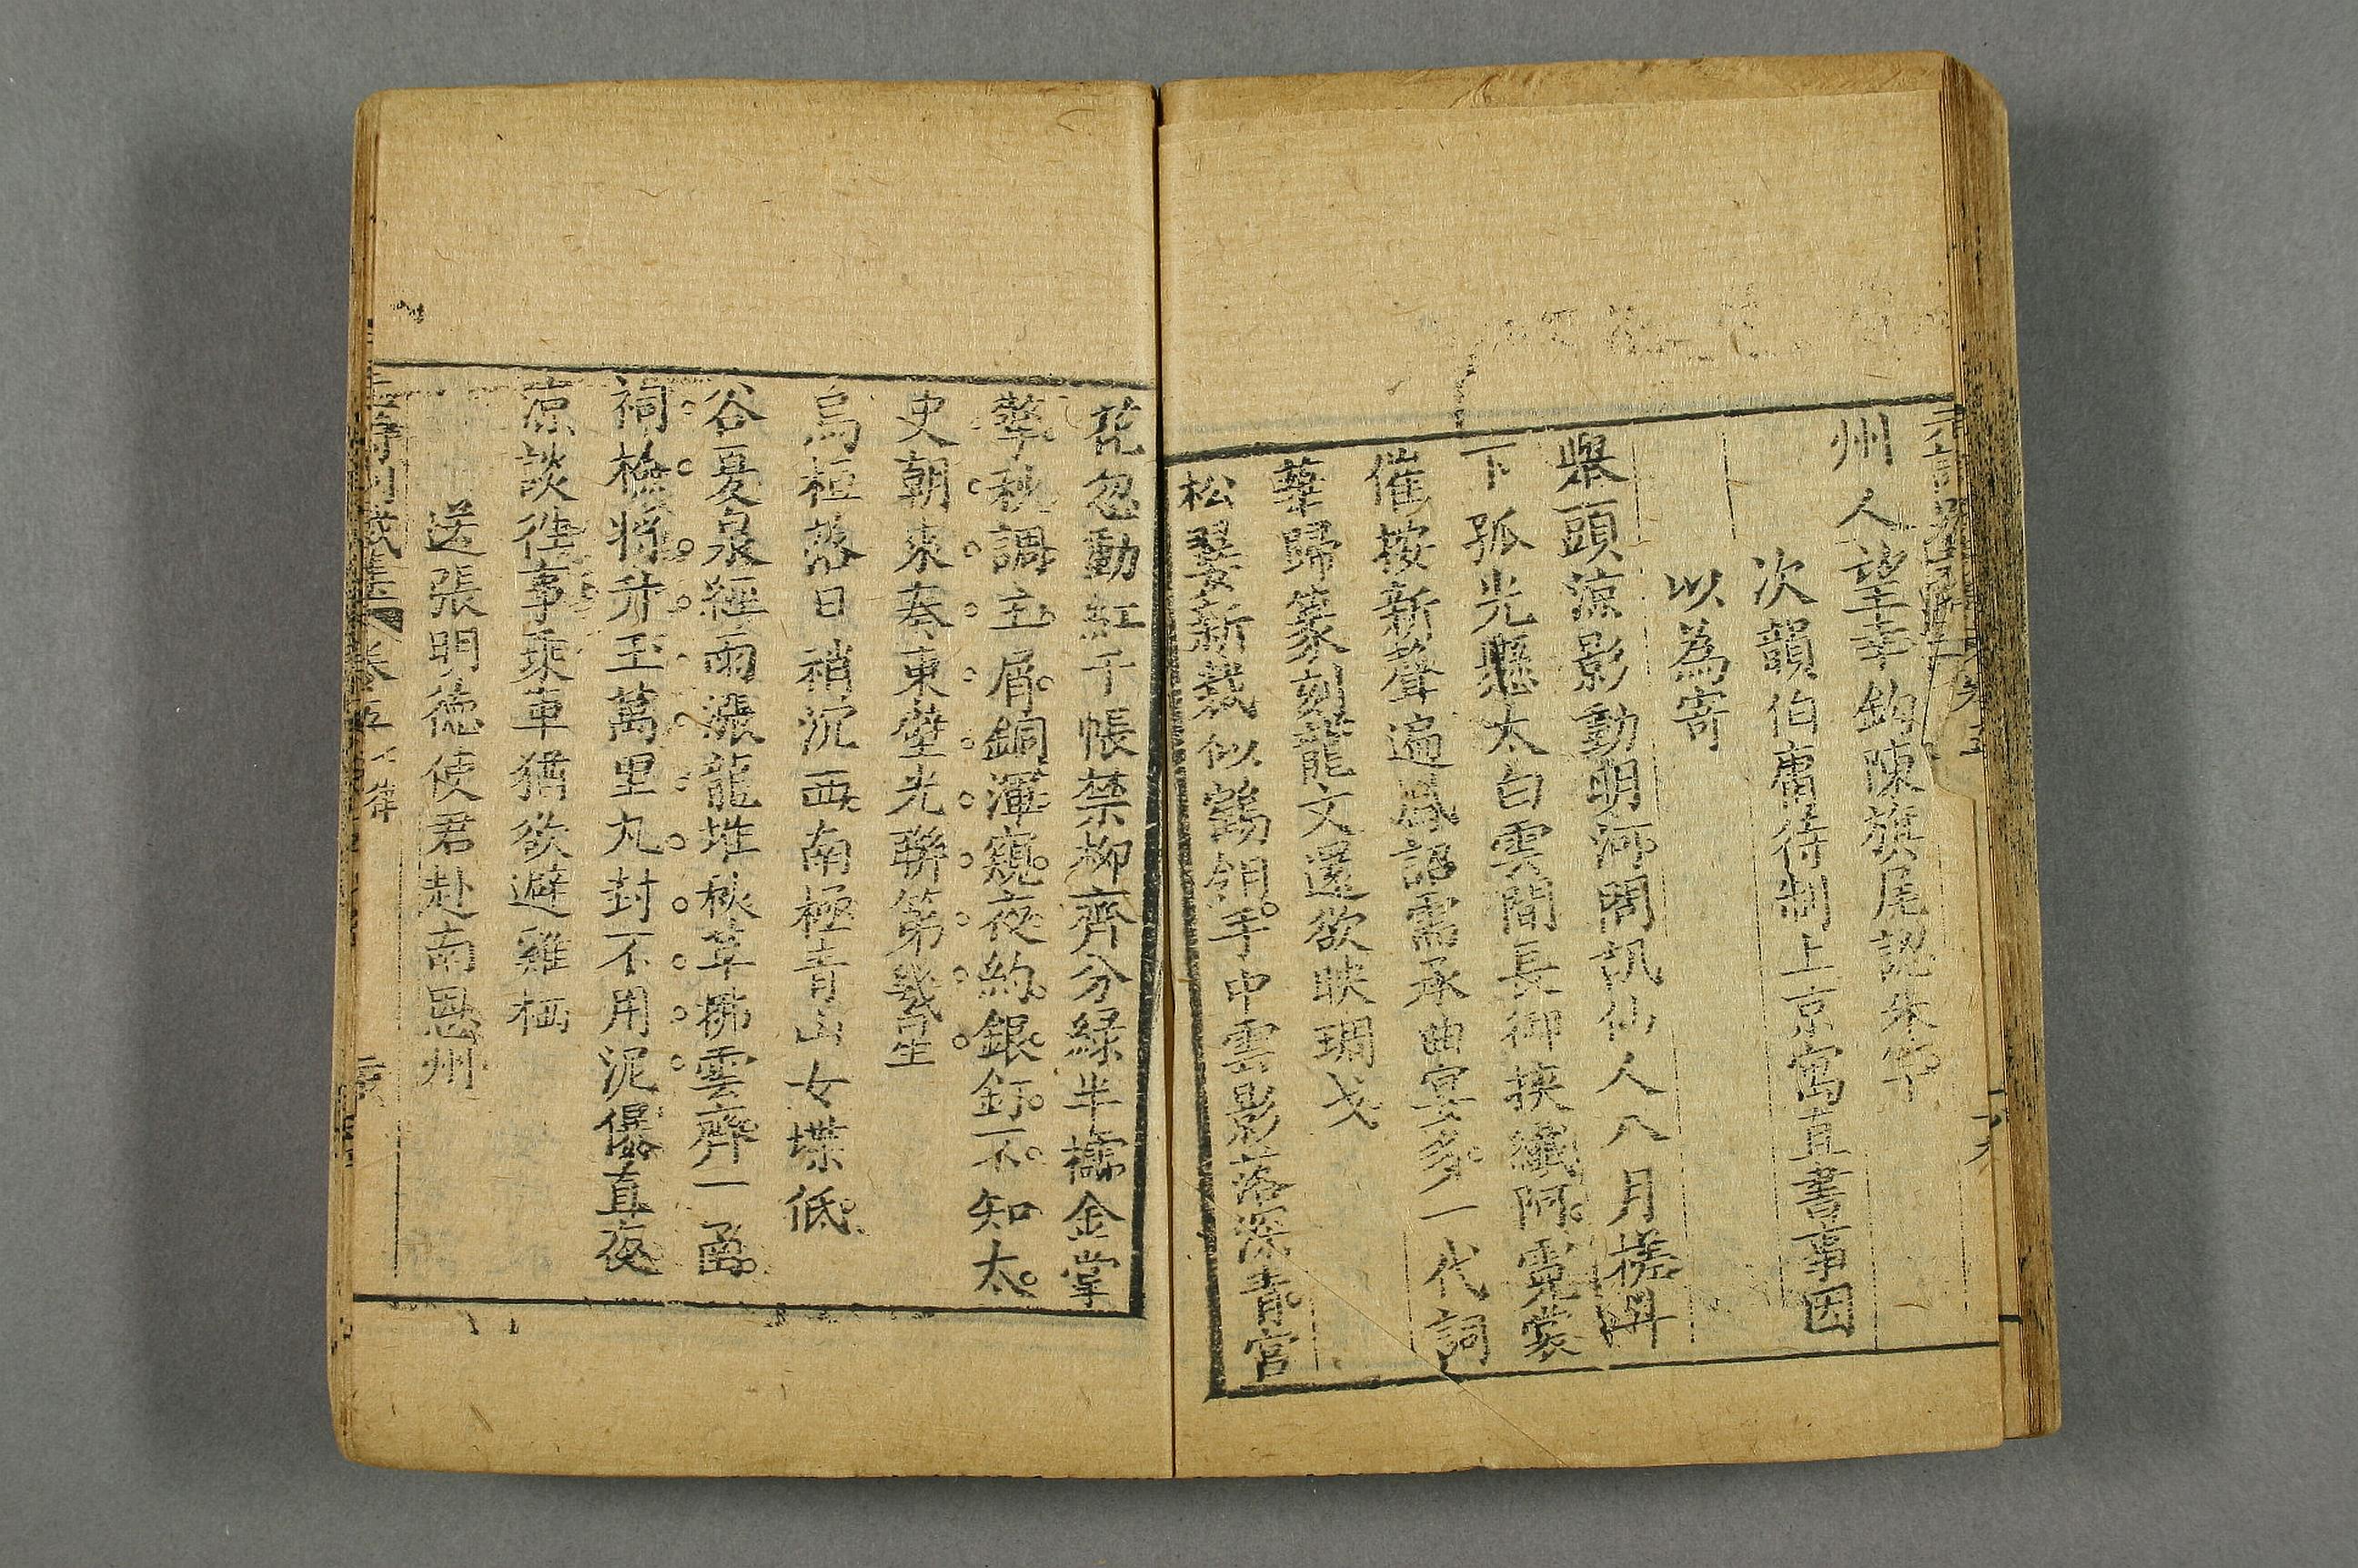 州人望幸鈎陳旗尾認朱字
次韻伯庸待制上京寓直書事因
以為寄
舉頭涼影動明河問訊仙人八月槎
下孤光懸太白雲間長御挾纖阿霓裳
催按新聲遍鳳詔需承曲宴多一代詞
華歸篆刻龍文還欲映琱戈
松翠新裁似鶴翎手中雲影落深青宮
花忽動紅千帳禁柳齊分綠半櫺金掌
擎秋調玉屑銅渾窺夜約銀釘不知太
史朝來奏東壁光聯第幾星
烏桓落日稍沉西南極青山女堞低
谷憂泉經雨漲龍堆秋草拂雲齊一函
祠檢將升玉萬里九封不用泥儤直夜
涼談往事乘車猶欲避雞栖
送張明德使君赴南恩州
卷五 七律